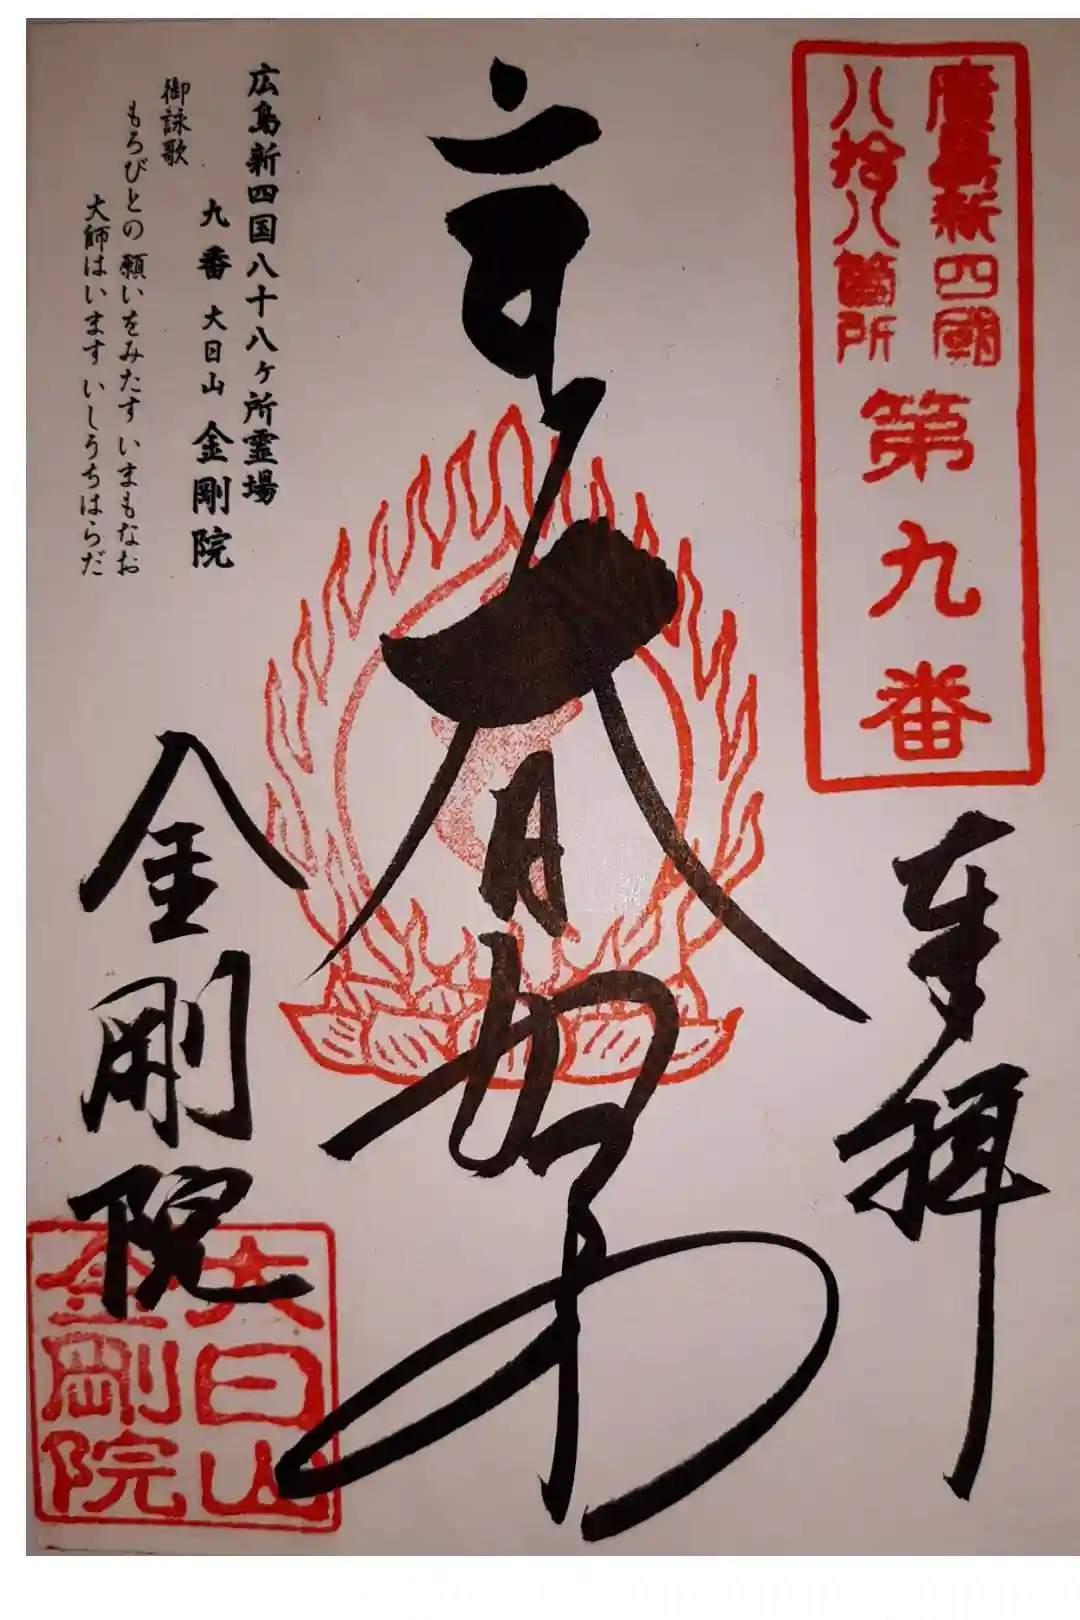 廣島新四國
八拾八箇所
第九番
奉拝
大日如来
広島新四国八十八ヶ所霊場
九番 大日山 金剛院
御詠歌
もろびとの 願いをみたす いまもなお
大師はいます いしうちはらだ
金剛院
大日山
金剛院